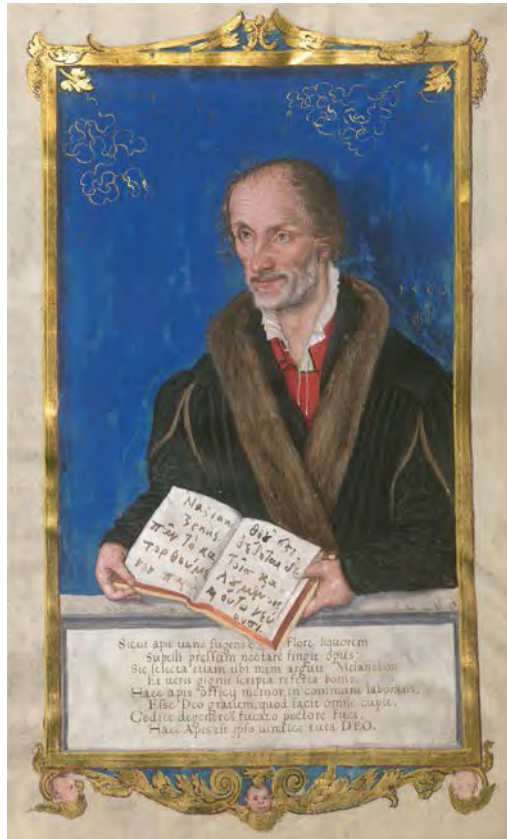 Nazian
ζενὸς
πᾶν τὸ κα
τορθούμε
νον παρὰ
θεῷ ἐςι,
δέδοται δὲ
τοῖσ κα
Sicut apis uario sugens e Flore liquorem
Subtili pressum nectare fingit opus:
Sic selecta etiam ubi mens arguit Melanthon
Et ueris gignit scripta referta bonis.
Haec apis officij memor in commune laborans,
Esse Deo gratum, quod facit omne cupit.
Cedite degeneres fucato pectore fuci,
Haec Apis est ipso uindice tuta DEO.